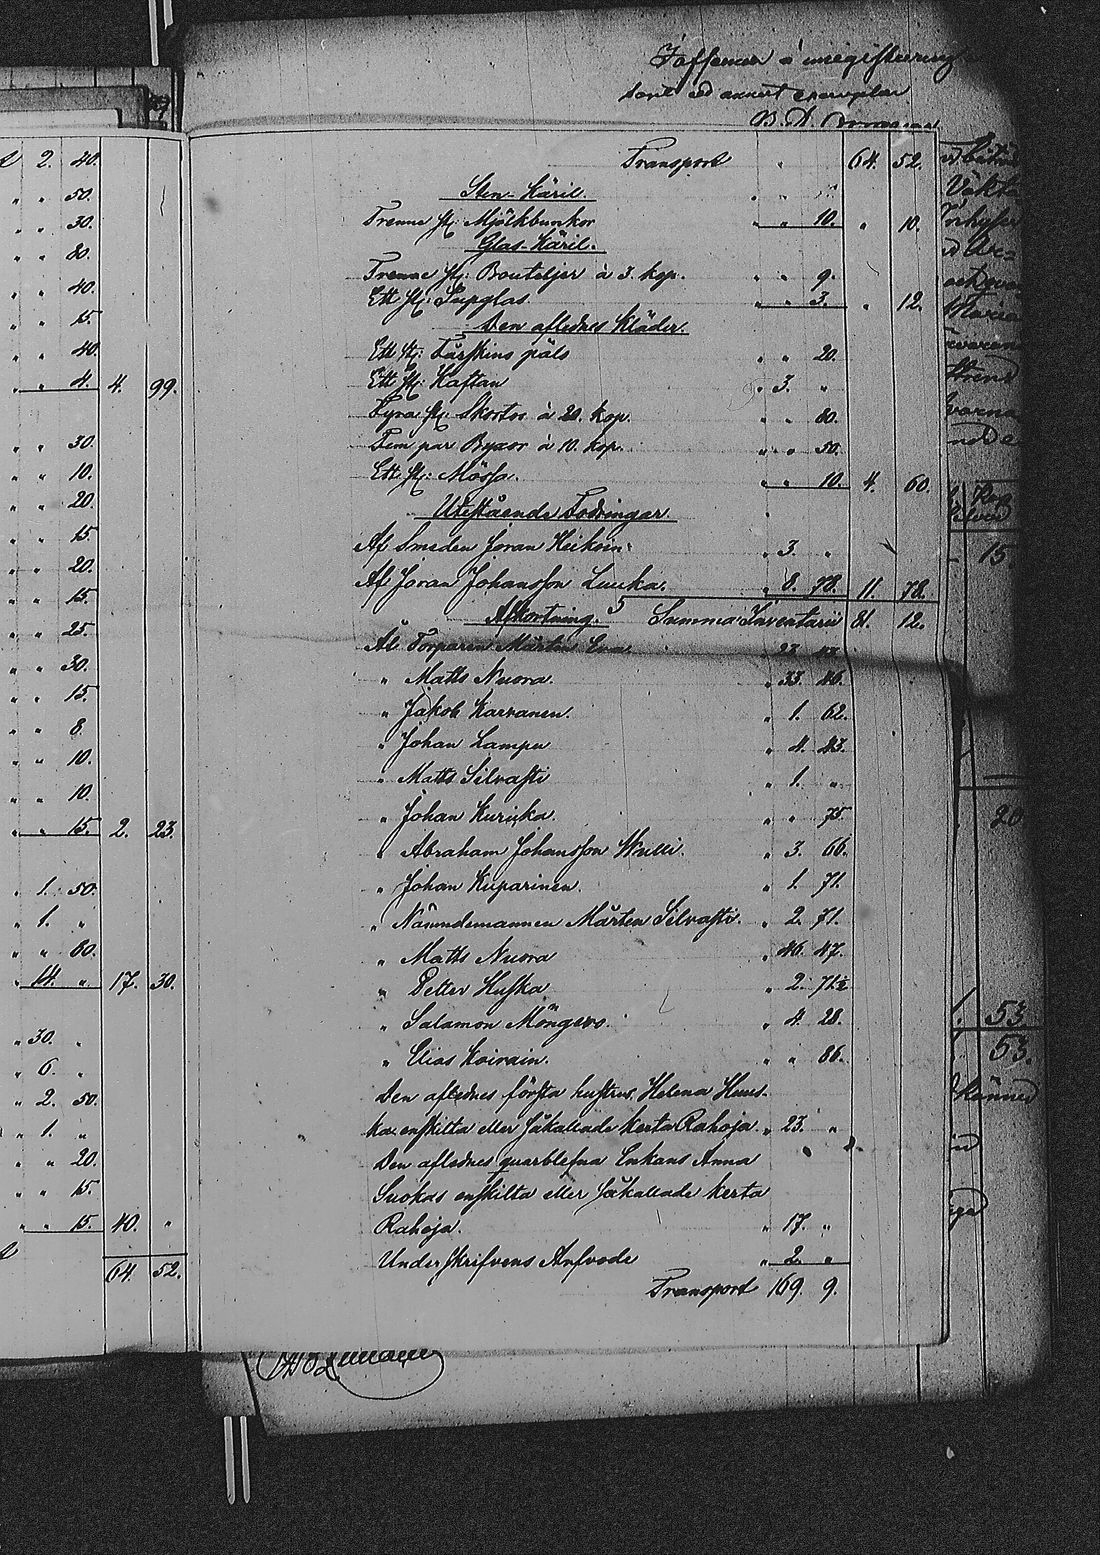 2. 40.
" " 50.
" " 30.
" " 80.
" " 40.
" " 15.
" " 40.
" " 4. 4. 99.
" " 30.
" " 10.
" " 20.
" " 15.
" " 20.
" " 15.
" " 25.
" " 30.
" " 15.
" " 8.
" " 10.
" " 10.
" " 15. 2. 23.
" 1. 50.
" 1. "
" " 60.
" 14. " 17. 30.
" 30. "
" 6. "
" 2. 50.
" 1. "
" " 20.
" " 15.
" " 15. 40. "
64. 52.
Transport " " 64. 52.
Sten-Käril.
Trenne st: Mjölkbunkor " " 10. " 10.
Glas-Käril.
Trenne st: Bouteljer à 3 kop. " " 9.
Ett st: Supglas " " 3. " 12.
Den aflednes Kläder.
Ett st: Fårskins päls " " 20.
Ett st: Kaftan " 3. "
Fyra st: Skortor à 20. kop. " " 80.
Fem par Byxor à 10. kop. " " 50.
Ett st: Mössa. " " 10. 4. 60.
Utestående Fodringar.
Af Smeden Joran Heikoin " 3. "
Af Joran Johansson Luuka. " 8. 78. 11. 78.
Afkortning. Summa Inventarii 81. 12.
Åt Torparen Mårten 23. 43.
" Matts Nuora. " 33. 46.
" Jakob Karvanen. " 1. 62.
" Johan Lampu " 4. 43.
" Matts Silvasti " 1. "
" Johan Kurikka. " " 75.
" Abraham Johansson Wulli. " 3. 66.
" Johan Kuparinen. " 1. 71.
" Nämndemannen Mårten Silvasti. " 2. 71.
" Matts Nuora " 46. 47.
" Petter Huska " 2. 71½
" Salamon Möngers. " 4. 28.
" Elias Koirain. " " 86.
Den aflednes första hustrus Helena Huus-
kas enskilta eller såkallade Kerta Rahoja. " 23. "
Den aflednes quarblefna Enkans Anna
Suokas enskilta eller såkallade Kerta
Rahoja. " 17. "
Underskrifvens Arfvode " 2. "
Transport 169. 9.
15.
20.
53.
53.